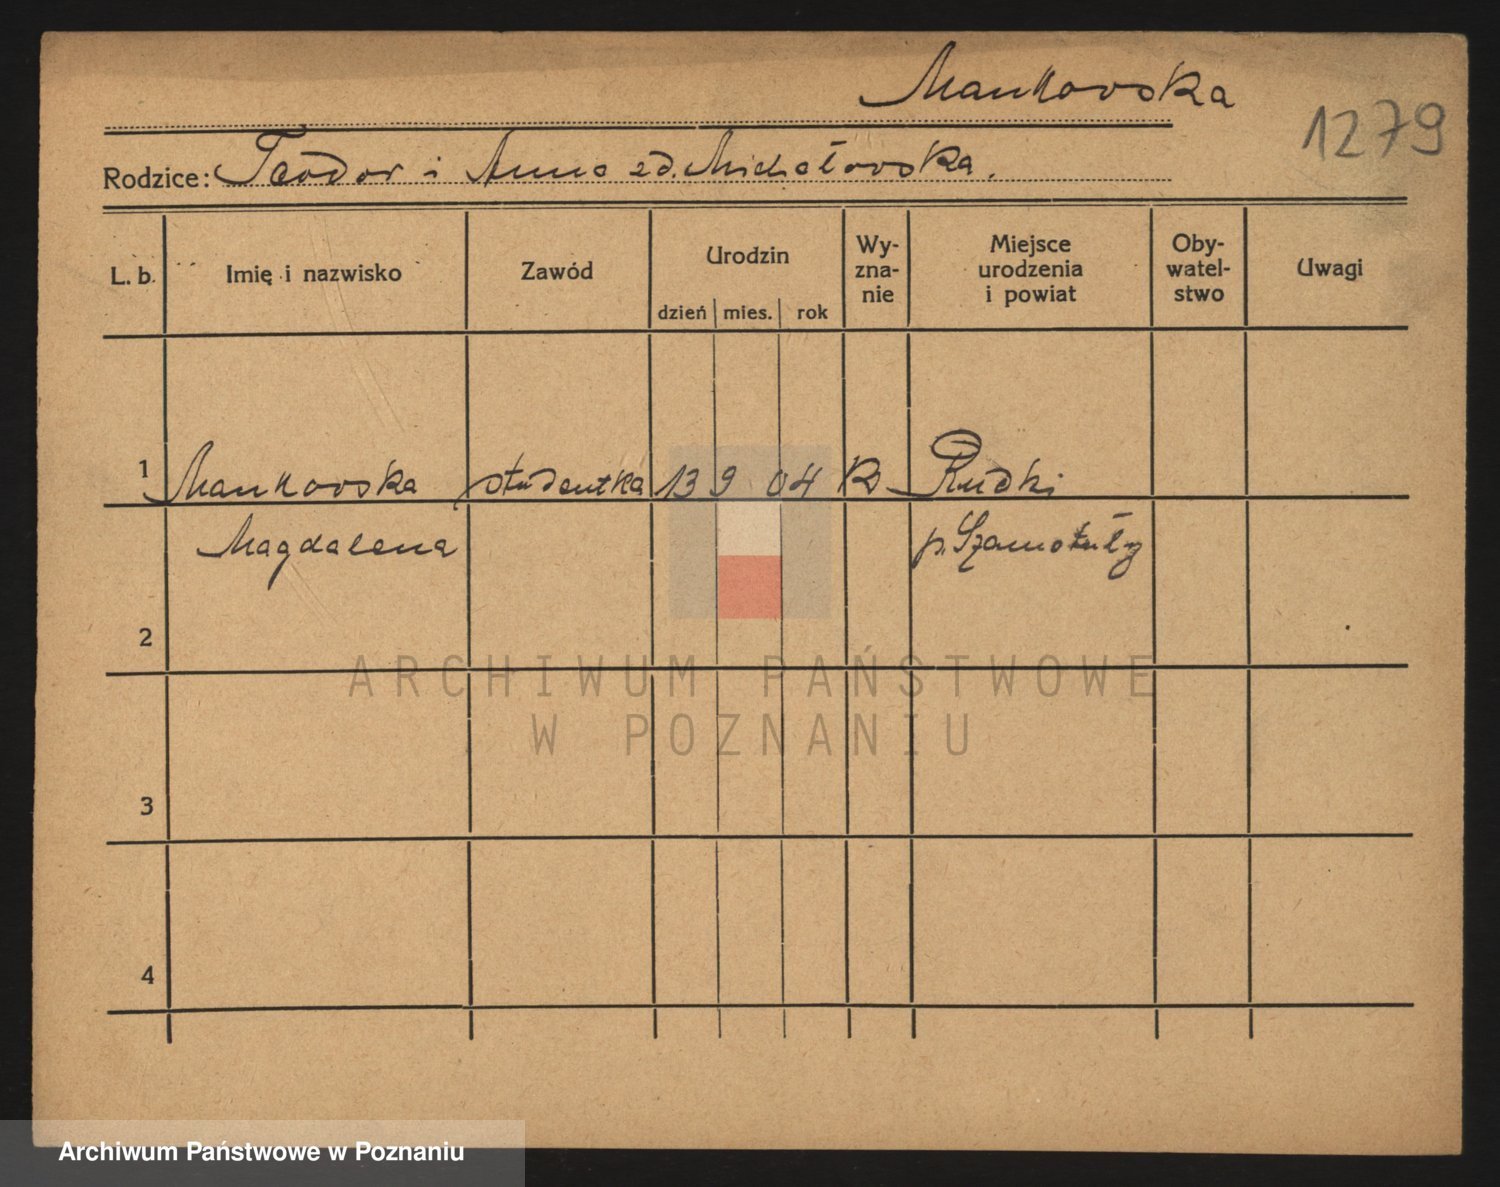 Mankowska
1279
Rodzice: Teodor i Anna zd. Michałowska.
L. b. Imię i nazwisko Zawód Urodzin dzień mies. rok Wy-zna-nie Miejsce urodzenia i powiat Oby-watel-stwo Uwagi
1 Mankowska studentka 13 9 04 Rudki
Magdalena p. Szamotuły
2
ARCHIWUM PAŃSTWOWE
W POZNANIU
3
4
Archiwum Państwowe w Poznaniu